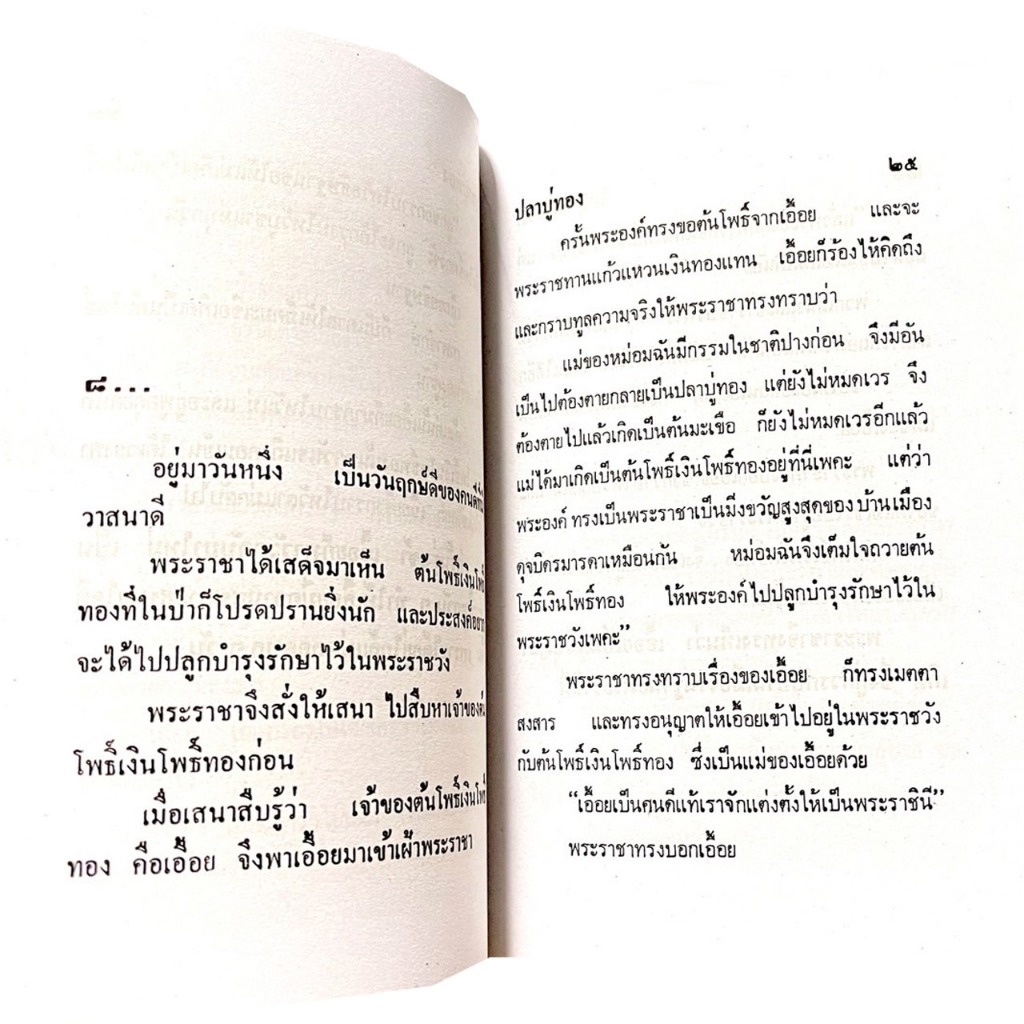 ๘...
อยู่มาวันหนึ่ง เป็นวันฤกษ์ดีของคนดีที่
วาสนาดี
พระราชาได้เสด็จมาเห็น ต้นโพธิ์เงินโพธิ์
ทองที่ในป่าก็โปรดปรานยิ่งนัก และประสงค์อยาก
จะได้ไปปลูกบำรุงรักษาไว้ในพระราชวัง
พระราชาจึงสั่งให้เสนา ไปสืบหาเจ้าของต้น
โพธิ์เงินโพธิ์ทองก่อน
เมื่อเสนาสืบรู้ว่า เจ้าของต้นโพธิ์เงินโพธิ์
ทอง คือเอื้อย จึงพาเอื้อยมาเข้าเฝ้าพระราชา
๒๕
ปลาบู่ทอง
ครั้นพระองค์ทรงขอต้นโพธิ์จากเอื้อย และจะ
พระราชทานแก้วแหวนเงินทองแทน เอื้อยก็ร้องไห้คิดถึง
และกราบทูลความจริงให้พระราชาทรงทราบว่า
แม่ของหม่อมฉันมีกรรมในชาติปางก่อน จึงมีอัน
เป็นไปต้องตายกลายเป็นปลาบู่ทอง แต่ยังไม่หมดเวร จึง
ต้องตายไปแล้วเกิดเป็นต้นมะเขือ ก็ยังไม่หมดเวรอีกแล้ว
แม่ได้มาเกิดเป็นต้นโพธิ์เงินโพธิ์ทองอยู่ที่นี่เพคะ แต่ว่า
พระองค์ ทรงเป็นพระราชาเป็นมิ่งขวัญสูงสุดของบ้านเมือง
ดุจบิดรมารดาเหมือนกัน หม่อมฉันจึงเต็มใจถวายต้น
โพธิ์เงินโพธิ์ทอง ให้พระองค์ไปปลูกบำรุงรักษาไว้ใน
พระราชวังเพคะ”
พระราชาทรงทราบเรื่องของเอื้อย ก็ทรงเมตตา
สงสาร และทรงอนุญาตให้เอื้อยเข้าไปอยู่ในพระราชวัง
กับต้นโพธิ์เงินโพธิ์ทอง ซึ่งเป็นแม่ของเอื้อยด้วย
“เอื้อยเป็นคนดีแท้เราจักแต่งตั้งให้เป็นพระราชินี”
พระราชาทรงบอกเอื้อย